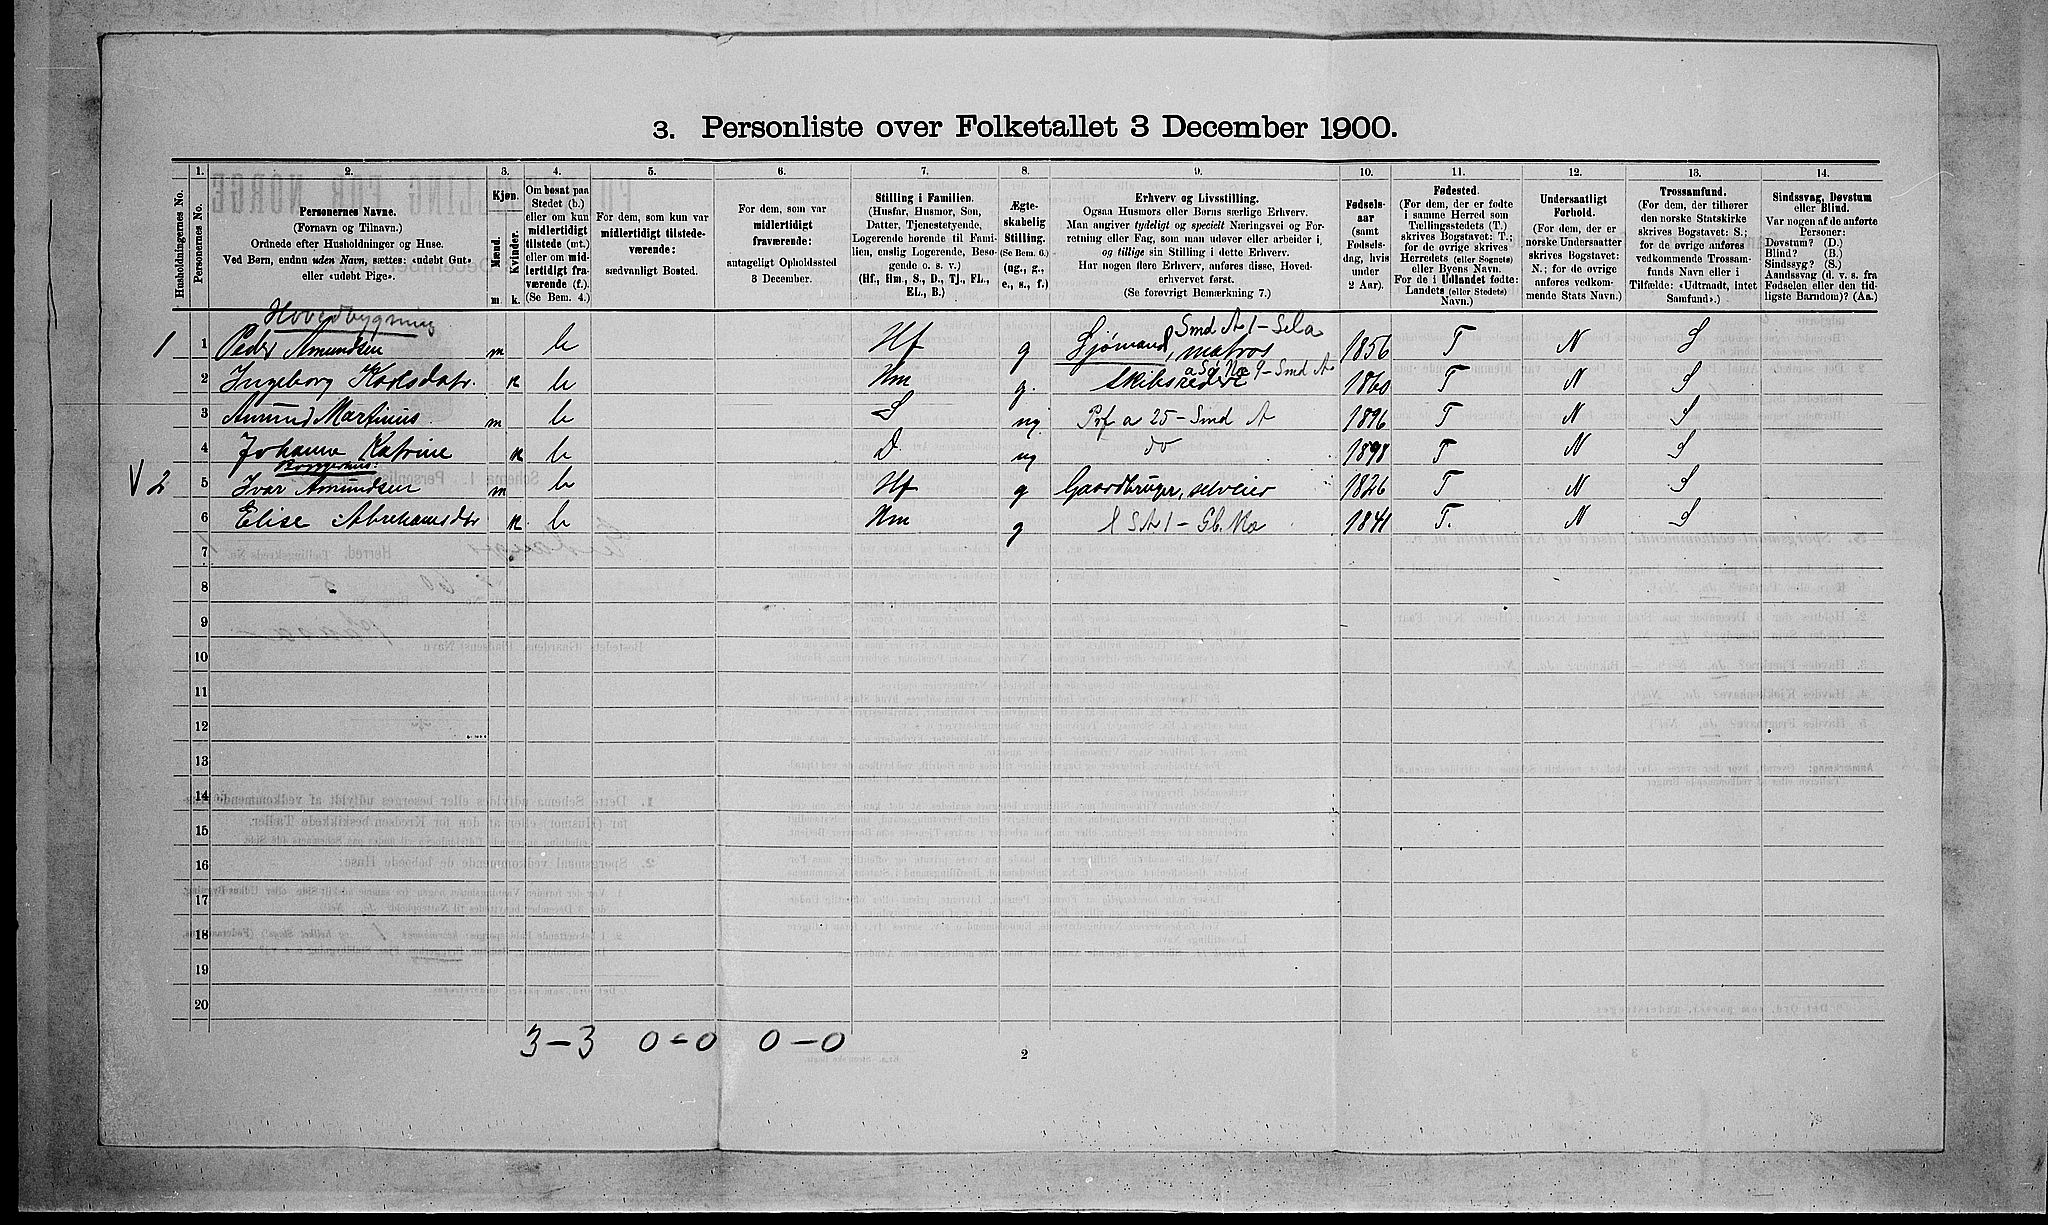 3. Personliste over Folketallet 3 December 1900.
Husholdningernes No.
1.
Personernes No.
2.
Personernes Navne.
(Fornavn og Tilnavn.)
Ordnede efter Husholdninger og Huse.
Ved Børn, endnu uden Navn, sættes: «udøbt Gut»
eller «udøbt Pige».
3.
Kjøn.
Mænd.
Kvinder.
m.
k.
4.
Om bosat paa
Stedet (b.)
eller om kun
midlertidigt
tilstede (mt.)
eller om mid-
lertidigt fra-
værende (f.).
(Se Bem. 4.)
5.
For dem, som kun var
midlertidigt tilstede-
værende:
sædvanligt Bosted.
6.
For dem, som var
midlertidigt
fraværende:
antageligt Opholdssted
3 December.
7.
Stilling i Familien.
(Husfar, Husmor, Søn,
Datter, Tjenestetyende,
Logerende hørende til Fami-
lien, enslig Logerende, Besø-
gende o. s. v.)
(Hf., Hm., S., D., Tj., FL.,
EL., B.)
8.
Ægte-
skabelig
Stilling.
(Se Bem. 6.)
(ug., g.,
e., s., f.)
9.
Erhverv og Livsstilling.
Ogsaa Husmors eller Børns særlige Erhverv.
Man angiver tydeligt og specielt Næringsvei og For-
retning eller Fag, som man udøver eller arbeider i,
og tillige sin Stilling i dette Erhverv.
Har nogen flere Erhverv, anføres disse, Hoved-
erhvervet først.
(Se forøvrigt Bemærkning 7.)
10.
Fødsels-
aar
(samt
Fødsels-
dag, hvis
under
2 Aar).
11.
Fødested.
(For dem, der er fødte
i samme Herred som
Tællingsstedets (T.)
skrives Bogstavet: T.;
for de øvrige skrives
Herredets (eller Sognets)
eller Byens Navn.
For de i Udlandet fødte:
Landets (eller Stedets)
Navn.)
12.
Undersaatligt
Forhold.
(For dem, der er
norske Undersaatter
skrives Bogstavet:
N.; for de øvrige
anføres vedkom-
mende Stats Navn.)
13.
Trossamfund.
(For dem, der tilhører
den norske Statskirke
skrives Bogstavet: S.;
for de øvrige anføres
vedkommende Trossam-
funds Navn eller i
Tilfælde: «Udtraadt, intet
Samfund».)
14.
Sindssvag, Døvstum
eller Blind.
Var nogen af de anførte
Personer:
Døvstum? (D.)
Blind? (B.)
Sindssyg? (S.)
Aandssvag (d. v. s. fra
Fødselen eller den tid-
ligste Barndom)? (Aa.)
Hovedbygning
Smd A 1 – Sela
1 1 Peder Amundsen m b Hf g Sjømand, matros 1856 T N S
2 Ingeborg Karlsdatr. k b Hm g. Skibsrederi 1860 T N S
3 Amund Martinus m b S ug Prf a 25 – Smd A 1896 T N S
4 Johanne Katrine k b D ug do 1898 T N S
V 2 5 Ivar Amundsen m b Hf g Gaardbruger, selveier 1826 T N S
6 Elise Abrahamsdtr k b Hm g 1841 T. N S
7
8
9
10
11
12
13
14
15
16
17
18
19
20
3 – 3 0 – 0 0 – 0
2